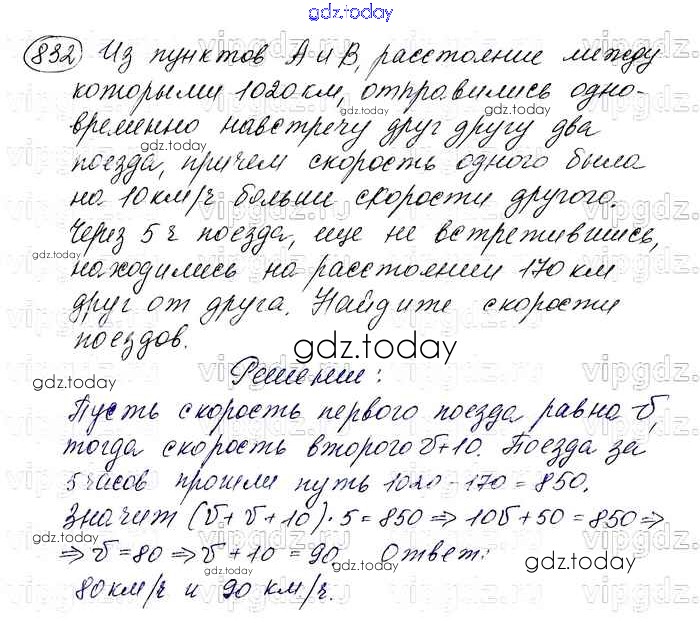 gdz.today
832 Из пунктов А и В, расстояние между
которыми 1020 км, отправились одно-
временно навстречу друг другу два
поезда, причем скорость одного была
на 10 км/ч больши скорости другого.
Через 5 ч поезда, еще не встретившись,
находились на расстоянии 170 км
друг от друга. Найдите скорости
поездов.
gdz.today
Решении:
Пусть скорость первого поезда равна v,
тогда скорость второго v+10. Поезда за
5 часов прошли путь 1020-170=850.
Значит (v+v+10)·5=850 ⇒ 10v+50=850 ⇒
⇒ v=80 ⇒ v+10=90 Ответ:
80 км/ч и 90 км/ч.